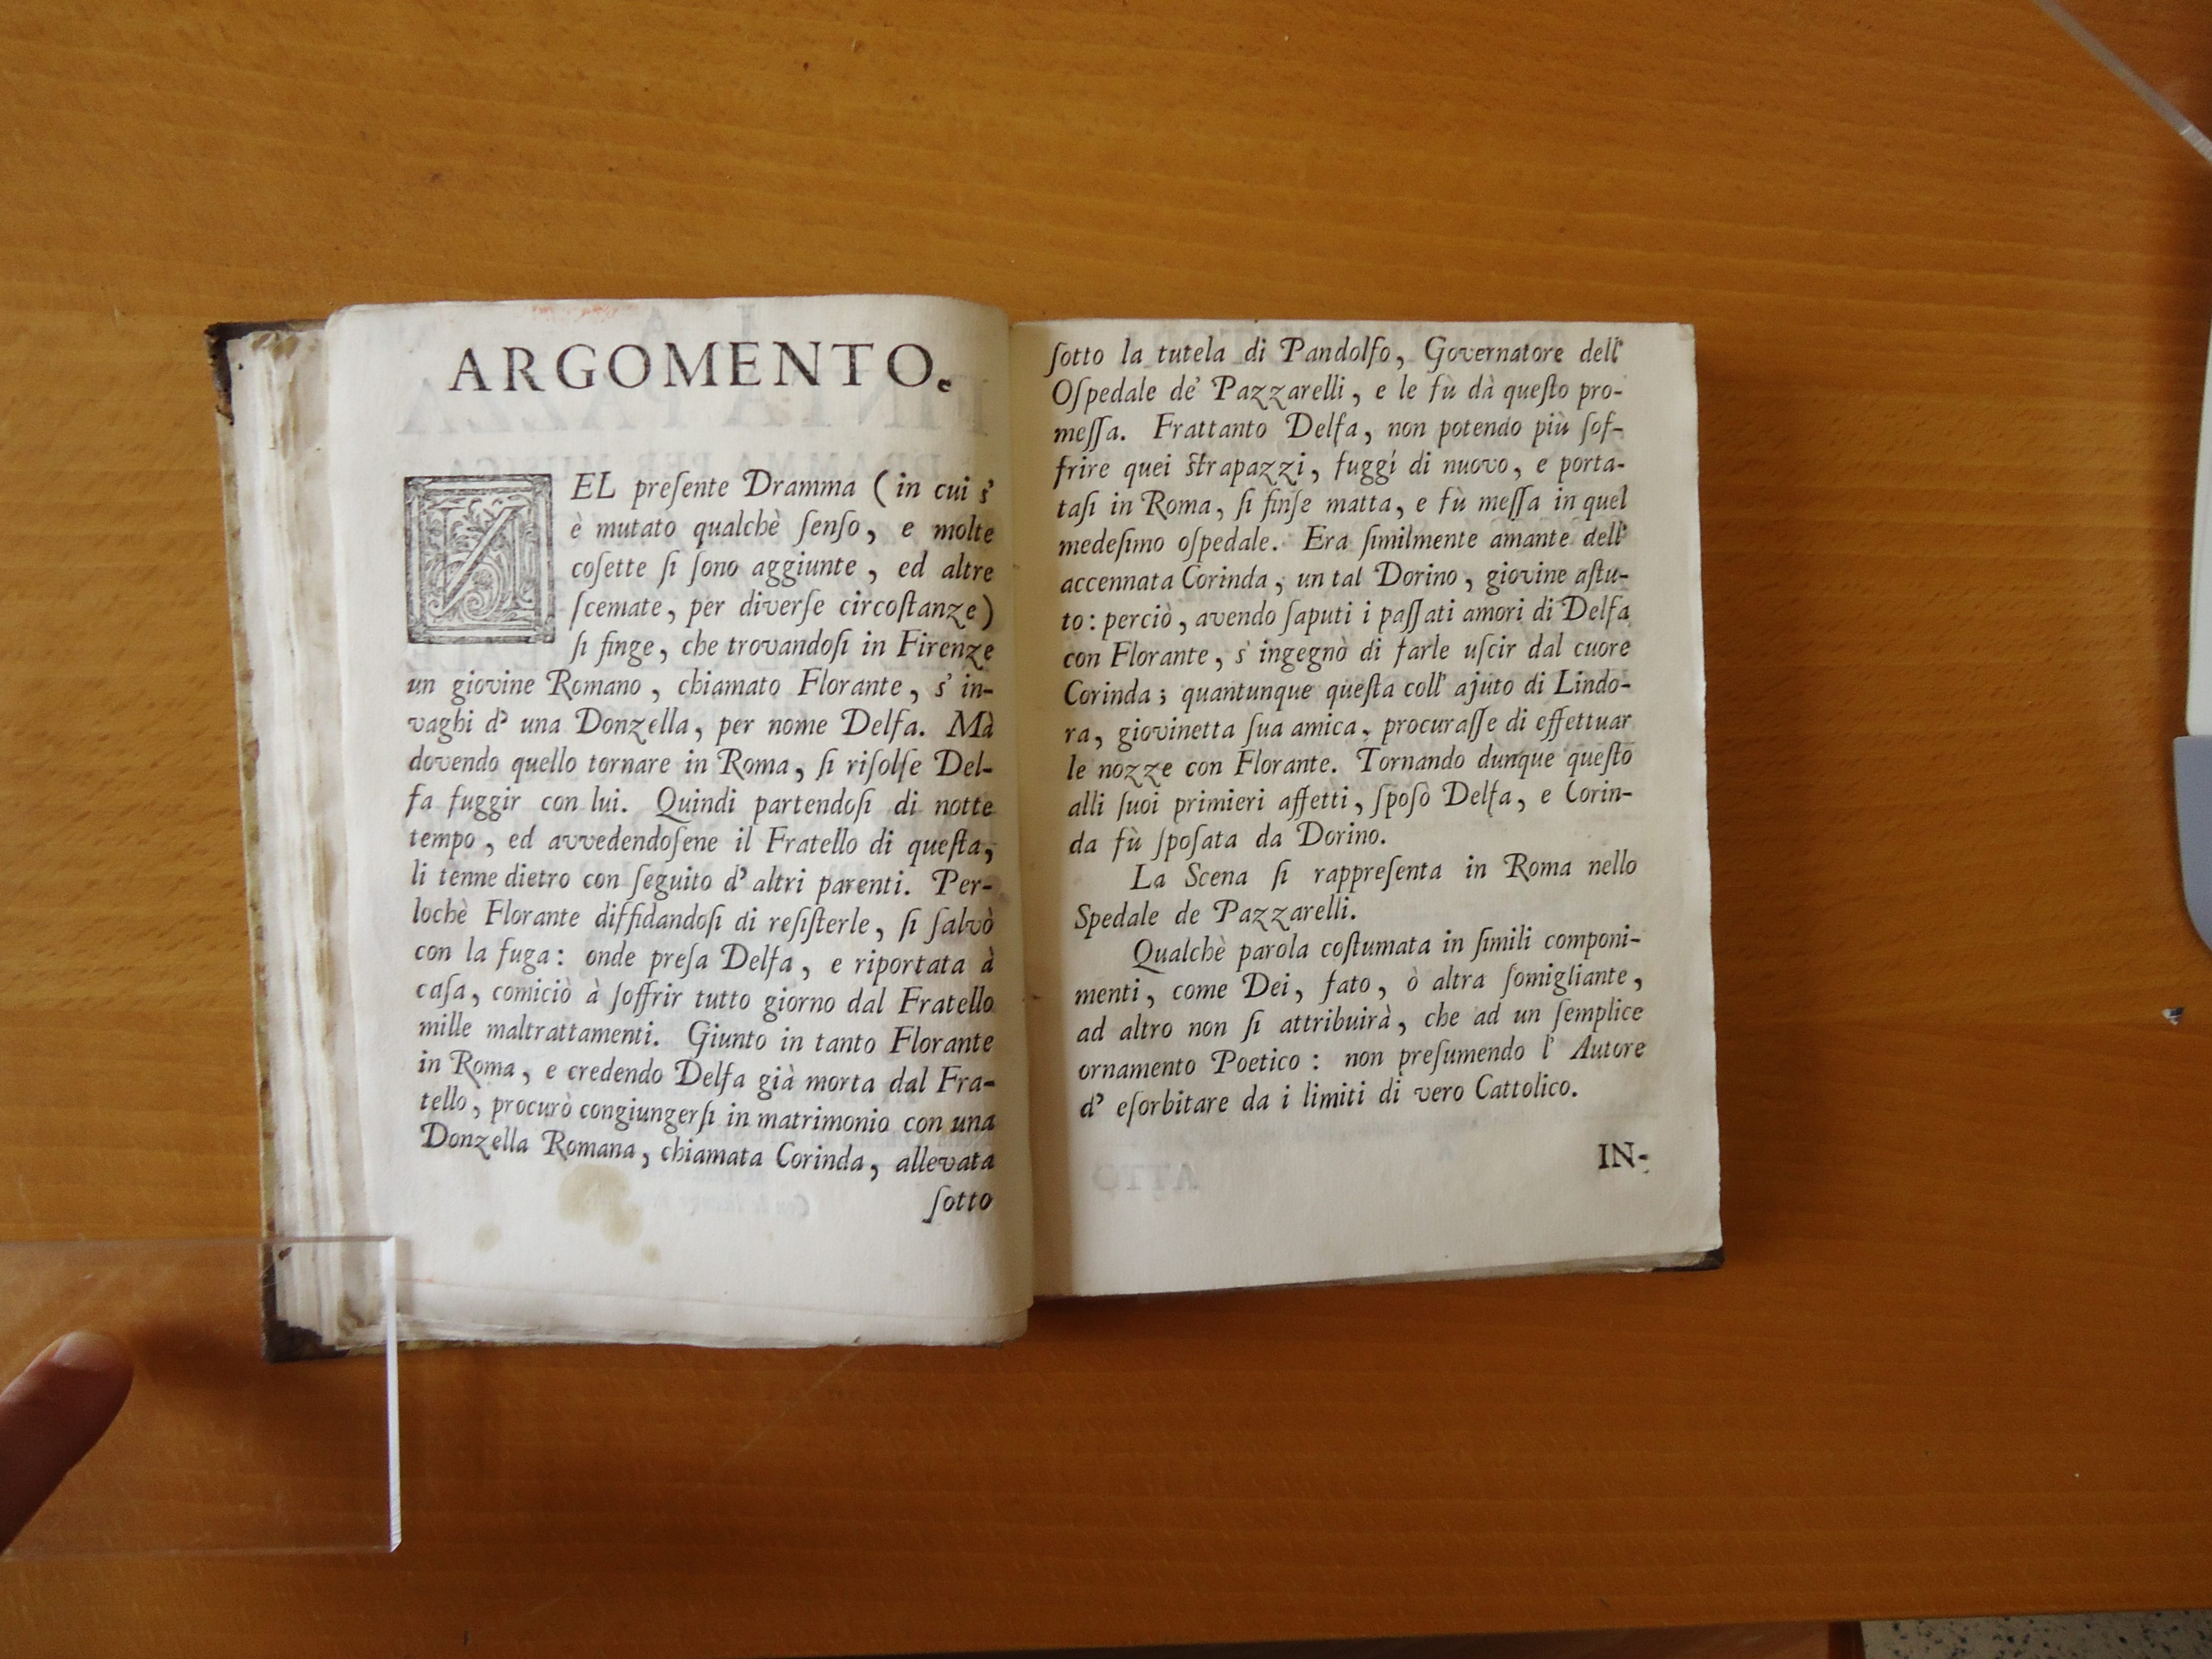 ARGOMENTO.
NEL preſente Dramma (in cui s'
è mutato qualchè ſenſo, e molte
coſette ſi ſono aggiunte, ed altre
ſcemate, per diverſe circoſtanze)
ſi finge, che trovandoſi in Firenze
un giovine Romano, chiamato Florante, s' in-
vaghi d' una Donzella, per nome Delfa. Mà
dovendo quello tornare in Roma, ſi riſolſe Del-
fa fuggir con lui. Quindi partendoſi di notte
tempo, ed avvedendoſene il Fratello di queſta,
li tenne dietro con ſeguito d' altri parenti. Per-
lochè Florante diffidandoſi di reſiſterle, ſi ſalvò
con la fuga: onde preſa Delfa, e riportata à
caſa, comiciò à ſoffrir tutto giorno dal Fratello
mille maltrattamenti. Giunto in tanto Florante
in Roma, e credendo Delfa già morta dal Fra-
tello, procurò congiungerſi in matrimonio con una
Donzella Romana, chiamata Corinda, allevata
ſotto
ſotto la tutela di Pandolfo, Governatore dell'
Oſpedale de' Pazzarelli, e le fù dà queſto pro-
meſſa. Frattanto Delfa, non potendo più ſof-
frire quei ſtrapazzi, fuggì di nuovo, e porta-
taſi in Roma, ſi finſe matta, e fù meſſa in quel
medeſimo oſpedale. Era ſimilmente amante dell'
accennata Corinda, un tal Dorino, giovine aſtu-
to: perciò, avendo ſaputi i paſſati amori di Delfa
con Florante, s' ingegnò di farle uſcir dal cuore
Corinda; quantunque queſta coll' ajuto di Lindo-
ra, giovinetta ſua amica, procuraſſe di effettuar
le nozze con Florante. Tornando dunque queſto
alli ſuoi primieri affetti, ſposò Delfa, e Corin-
da fù ſpoſata da Dorino.
La Scena ſi rappreſenta in Roma nello
Spedale de Pazzarelli.
Qualchè parola coſtumata in ſimili componi-
menti, come Dei, fato, ò altra ſomigliante,
ad altro non ſi attribuirà, che ad un ſemplice
ornamento Poetico: non preſumendo l' Autore
d' eſorbitare da i limiti di vero Cattolico.
IN-